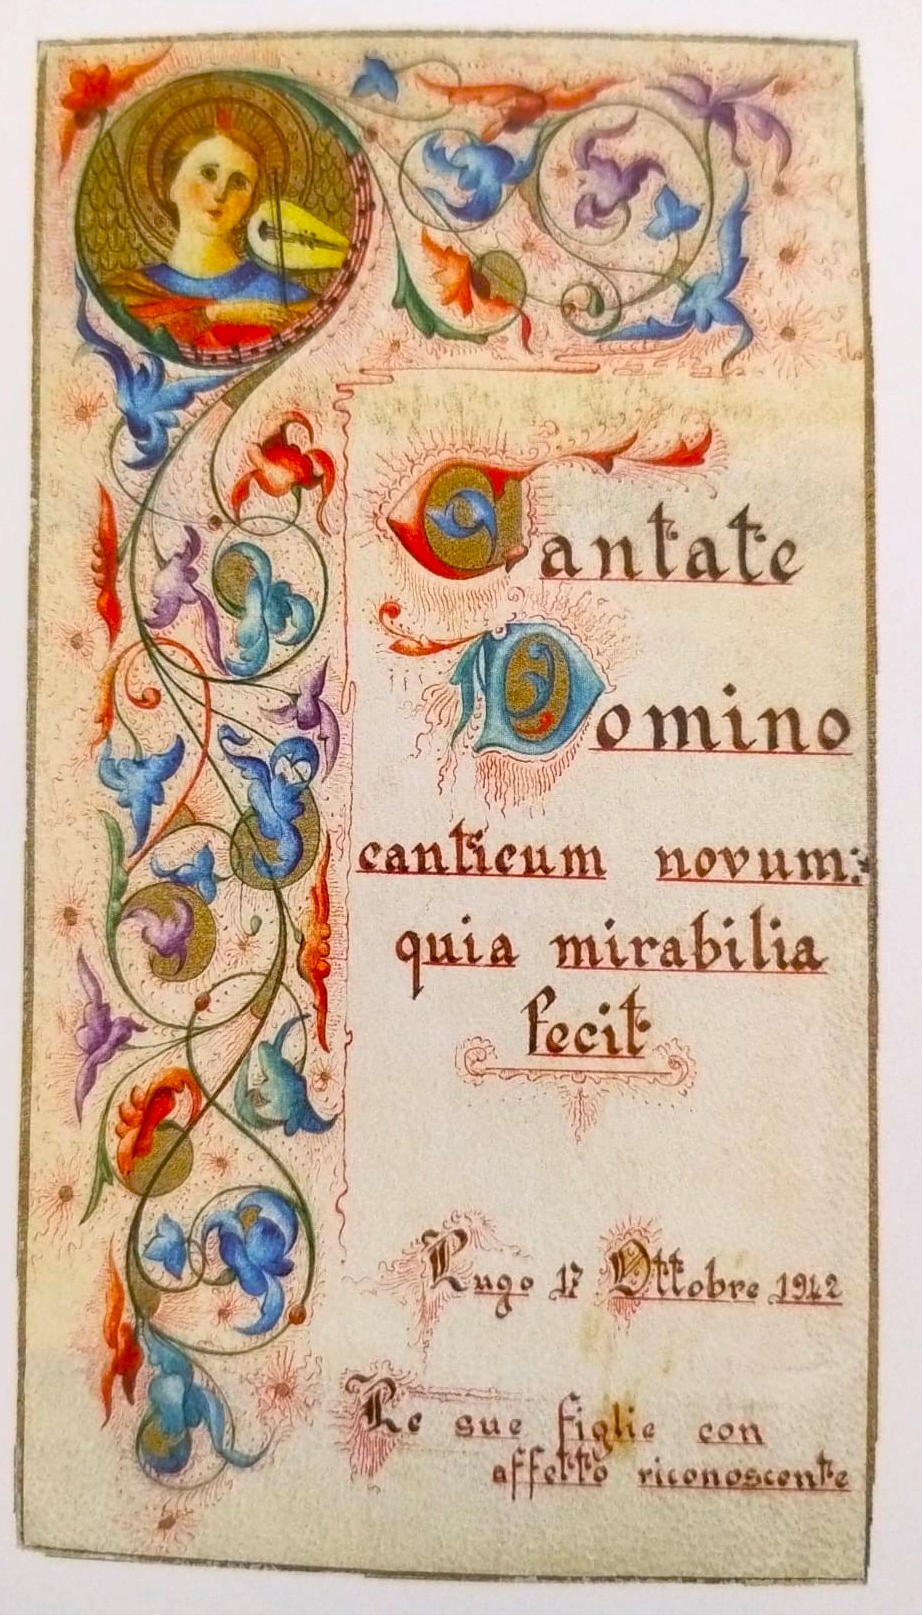 Cantate
Domino
canticum novum:
quia mirabilia
fecit
Lugo 17 Ottobre 1942
Le sue figlie con
affetto riconoscente